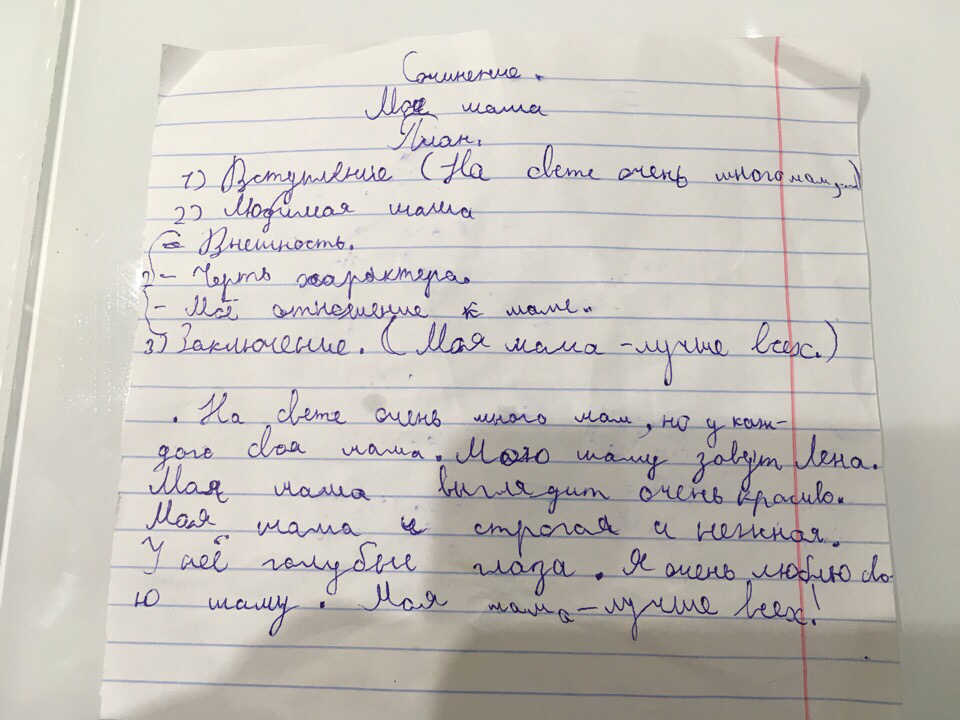 Сочинение.
Моя мама
План.
1) Вступление (На свете очень много мам,...)
2) Любимая мама
- Внешность.
2) - Черты характера.
- Моё отношение к маме.
3) Заключение. (Моя мама - лучше всех.)
. На свете очень много мам, но у каж-
дого своя мама. Мою маму зовут Лена.
Моя мама выглядит очень красиво.
Моя мама и строгая и нежная.
У неё голубые глаза. Я очень люблю сво-
ю маму. Моя мама - лучше всех!